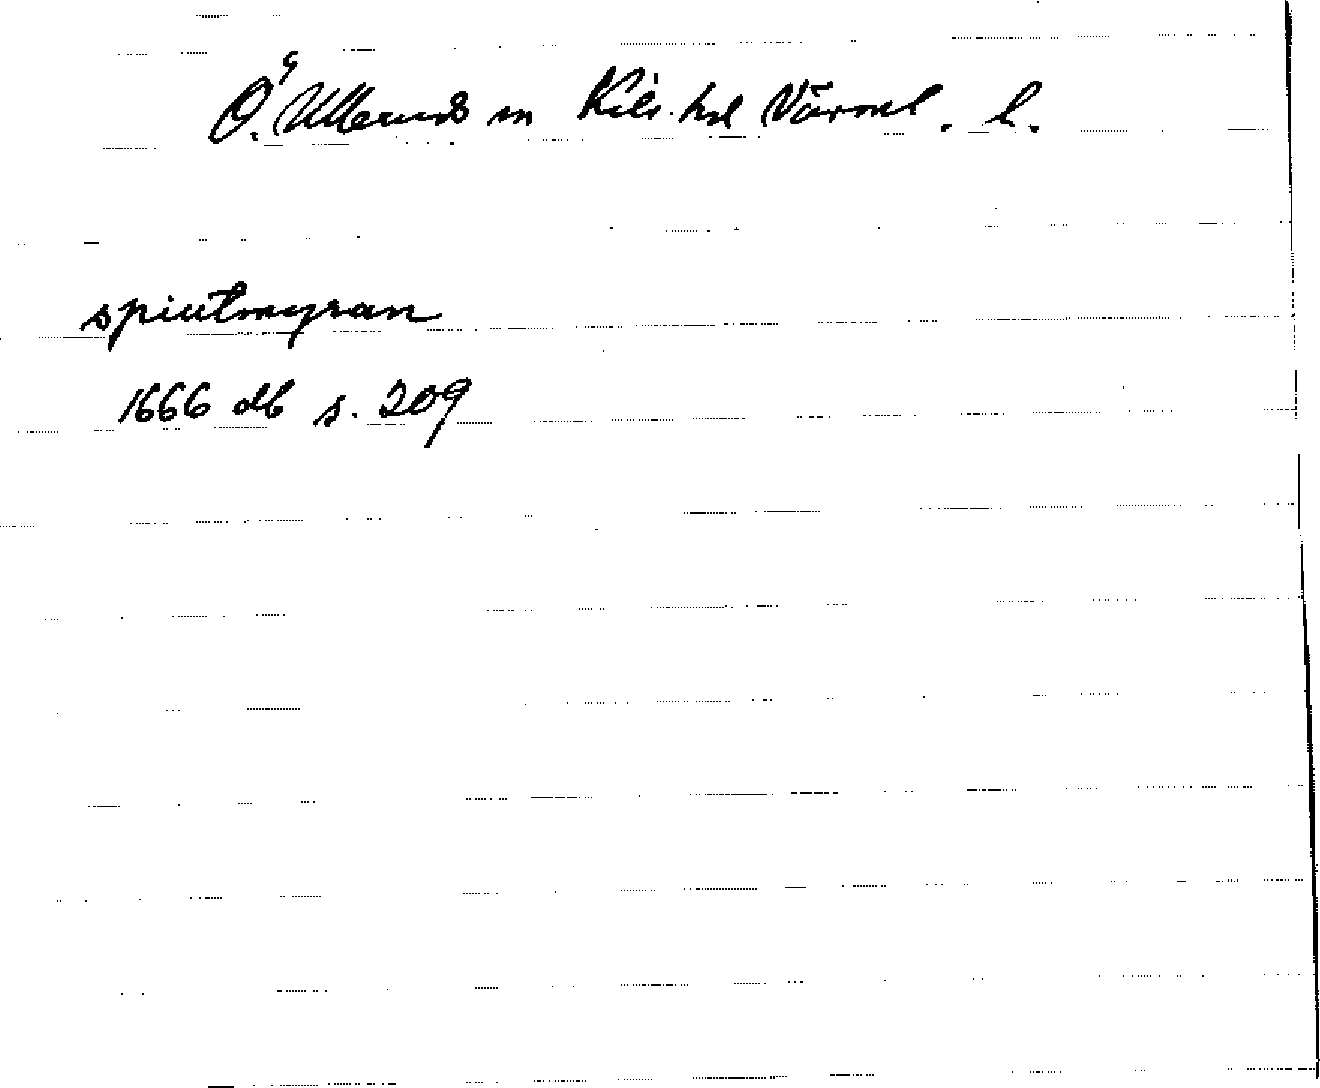 Ö. Ullerud sn Kils hd Värml. l.
spiutmyran
1666 db s. 209